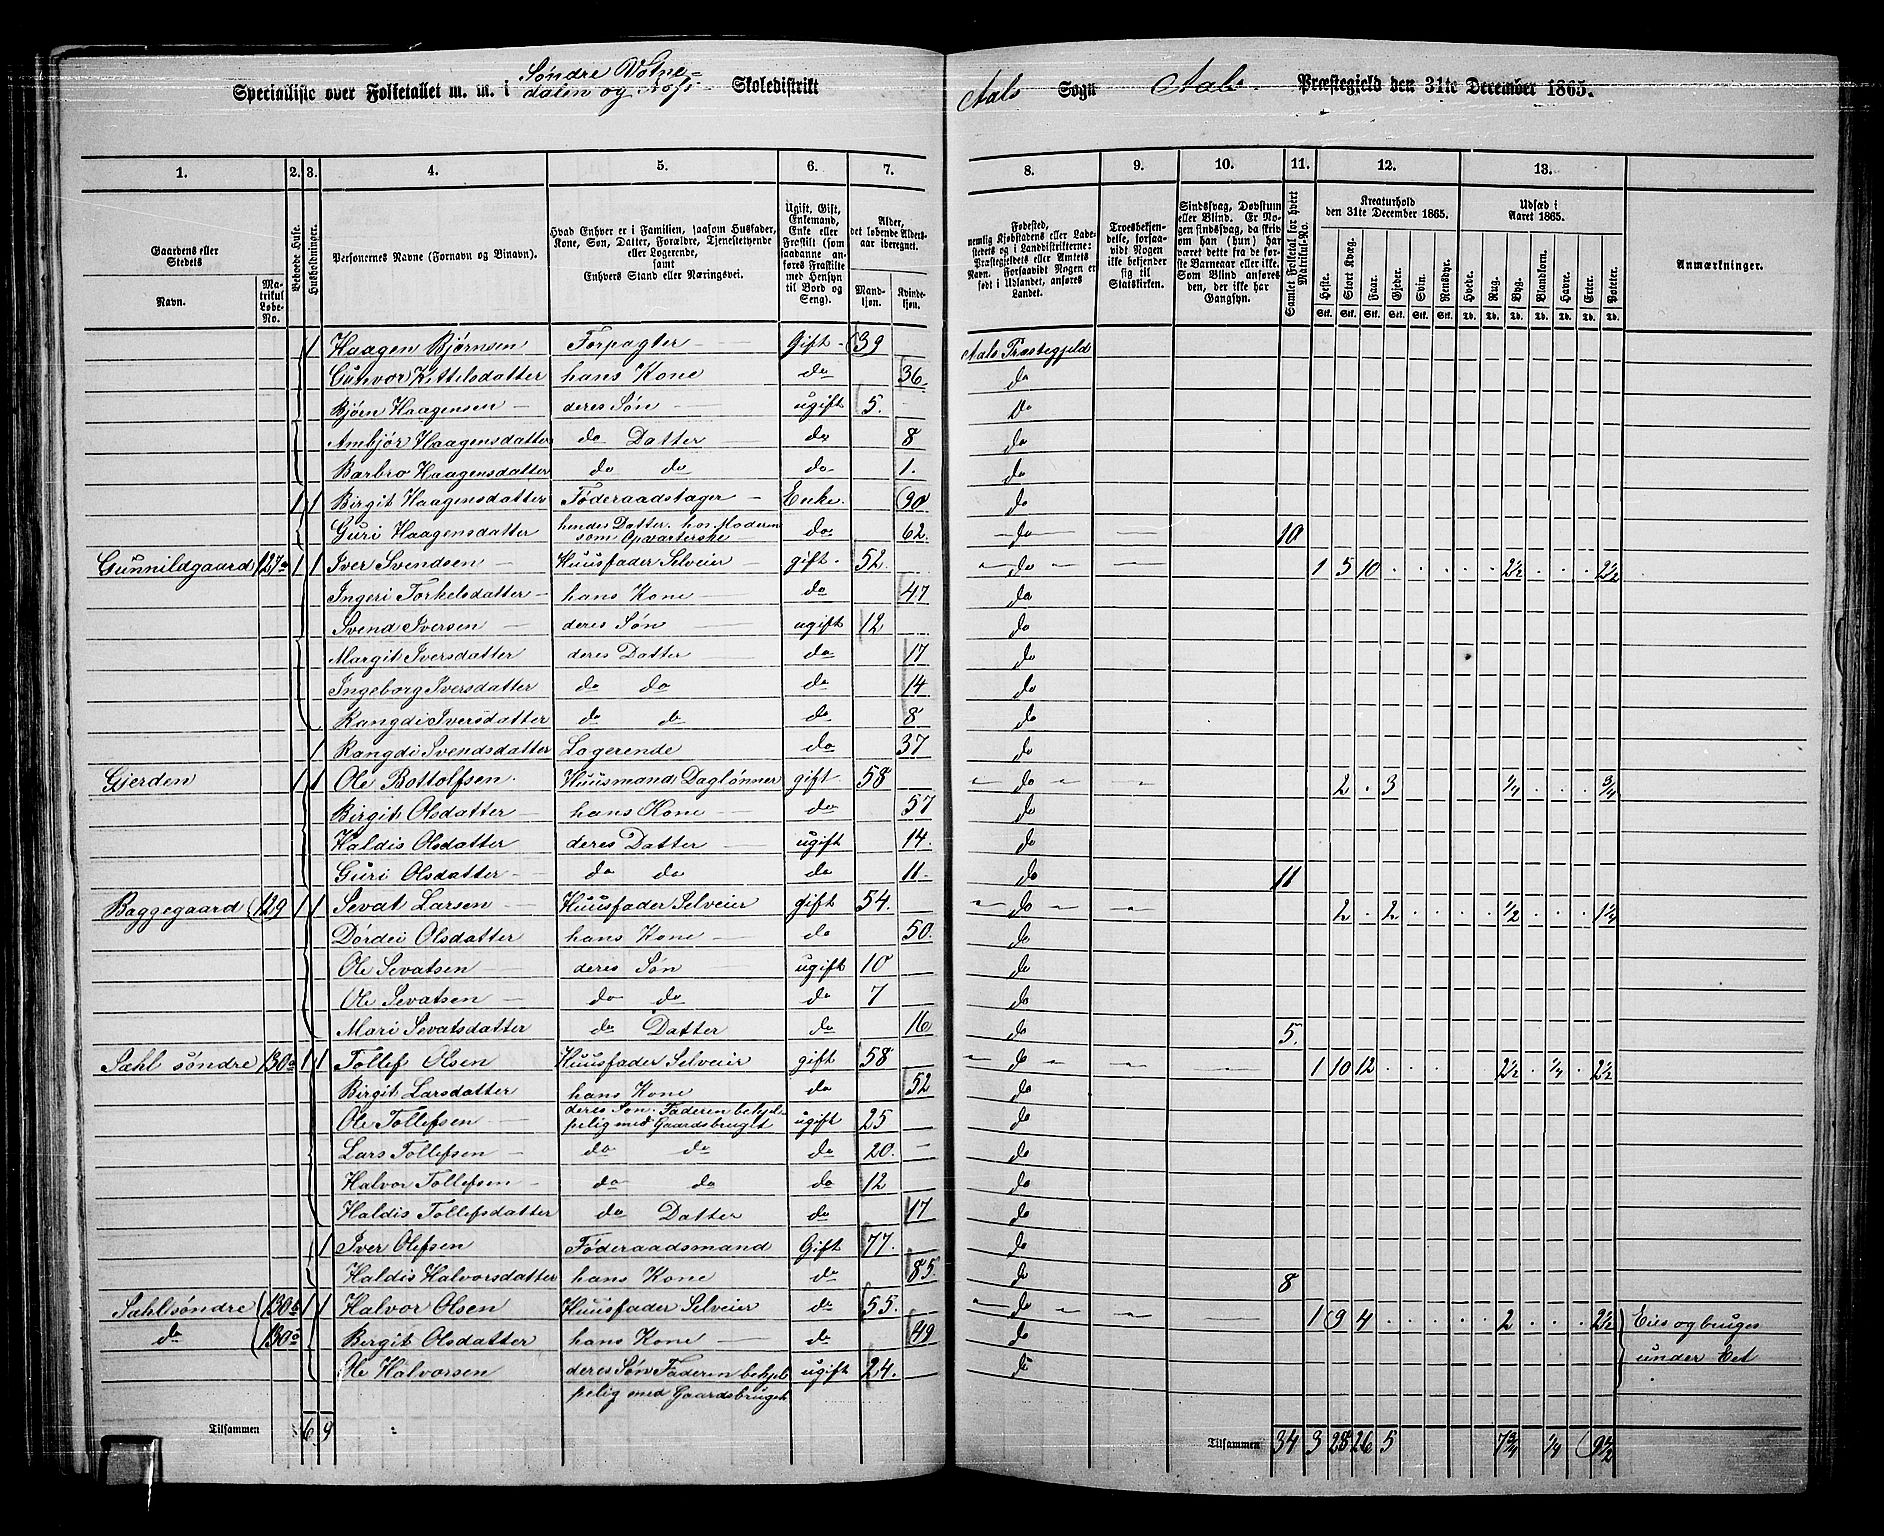 Specialliste over Folketallet m. m. i Søndre Votne-
dalen og Skoledistrikt Aals Sogn Aals Præstegjeld den 31te December 1865.
1. 2. 3. 4. 5. 6. 7. 8. 9. 10. 11. 12. 13.
Gaardens eller Stedets
Navn. Matrikul Løbe-No.
Beboede Huse.
Husholdninger.
Personernes Navne (Fornavn og Binavn).
Hvad Enhver er i Familien, saasom Husfader, Kone, Søn, Datter, Forældre, Tjenestetyende eller Logerende, samt Enhvers Stand eller Næringsvei.
Ugift, Gift, Enkemand, Enke eller Fraskilt (som saadanne anføres Fraskilte med Hensyn til Bord og Seng).
Alder, det løbende Aldersaar iberegnet.
Mandkjøn. Kvindekjøn.
Fødested, nemlig Kjøbstadens eller Ladestedets og i Landdistrikterne: Præstegjeldets eller Amtets Navn. Forsaavidt Nogen er født i Udlandet, anføres Landet.
Troesbekjendelse, forsaavidt Nogen ikke bekjender sig til Statskirken.
Sindssvag, Døvstum eller Blind. Er Nogen sindssvag, da skrives om han (hun) har været dette fra de første Barneaar eller ikke. Som Blind anføres den, der ikke har Gangsyn.
Samlet Folketal for hvert Matrikul-No.
Kreaturhold den 31te December 1865.
Heste. Stort Kvæg. Faar. Gjeder. Svin. Rensdyr.
Udsæd i Aaret 1865.
Hvede. Rug. Byg. Blandkorn. Havre. Erter. Poteter.
Anmærkninger.
1 Haagen Bjørnsen Forpagter Gift 39 Aals Præstegjeld
Gunvor Kittelsdatter hans Kone do 36 do
Bjørn Haagensen deres Søn ugift 5. Do
Ambjør Haagensdatter do Datter do 8 do
Barbro Haagensdatter do do do 1. do
1 1 Birgit Haagensdatter Føderaadstager Enke. 90 do
Guri Haagensdatter hendes Datter. hos Moderen
som Opvarterske do 62. do 10
Gunnildgaard 127a 1 1 Iver Svendsen Huusfader Selveier gift 52 do 1 5 10 . . . . . 2½ . . . 2½
Ingeri Torkelsdatter hans Kone do 47 do
Svend Iversen deres Søn ugift 12 do
Margit Iversdatter deres Datter do 17 do
Ingeborg Iversdatter do do do 14 do
Rangdi Iversdatter do do do 8 do
1 Rangdi Svendsdatter Logerende do 37 do
Gjerden 1 1 Ole Bottolfsen. Huusmand Daglønner gift 58 do 2 . 3 ¼ . . . ¾
Birgit Olsdatter hans Kone do 57 do
Haldis Olsdatter deres Datter ugift 14. do
Guri Olsdatter do do do 11. do 11
Baggegaard 129 1 1 Sevat Larsen Huusfader Selveier gift 54. do 2 . 2 . . . . ½ . . . 1¼
Dørdei Olsdatter hans Kone do 50. do
Ole Sevatsen deres Søn ugift 10 do
Ole Sevatsen do do do 7 do
Mari Sevatsdatter do Datter do 16 do 5.
Sahl søndre 130a 1 1 Tollef Olsen Huusfader Selveier gift 58 do 1 10 12 . . . . 2½ . ¼ . 2½
Birgit Larsdatter hans Kone do 52 do
Ole Tollefsen deres Søn. Faderen behjel-
pelig med Gaardsbruget ugift 25 do
Lars Tollefsen do do do 20. do
Halvor Tollefsen do do do 12 do
Haldis Tollefsdatter do Datter do 17 do
1 Iver Olefsen Føderaadsmand Gift 77. do
Haldis Halvorsdatter hans Kone do 85. do 8
Sahl søndre 130b 1 1 Halvor Olsen Huusfader Selveier do 55. do 1 9 4 . . . . . 2 . . . 2½ Eies og bruges
do 130c Birgit Olsdatter hans Kone do 49 do under Eet
Ole Halvorsen deres Søn Faderen behjel-
pelig med Gaardsbruget ugift 24. do
Tilsammen 6 9 Tilsammen 34 3 28 26 5 7¾ ¼